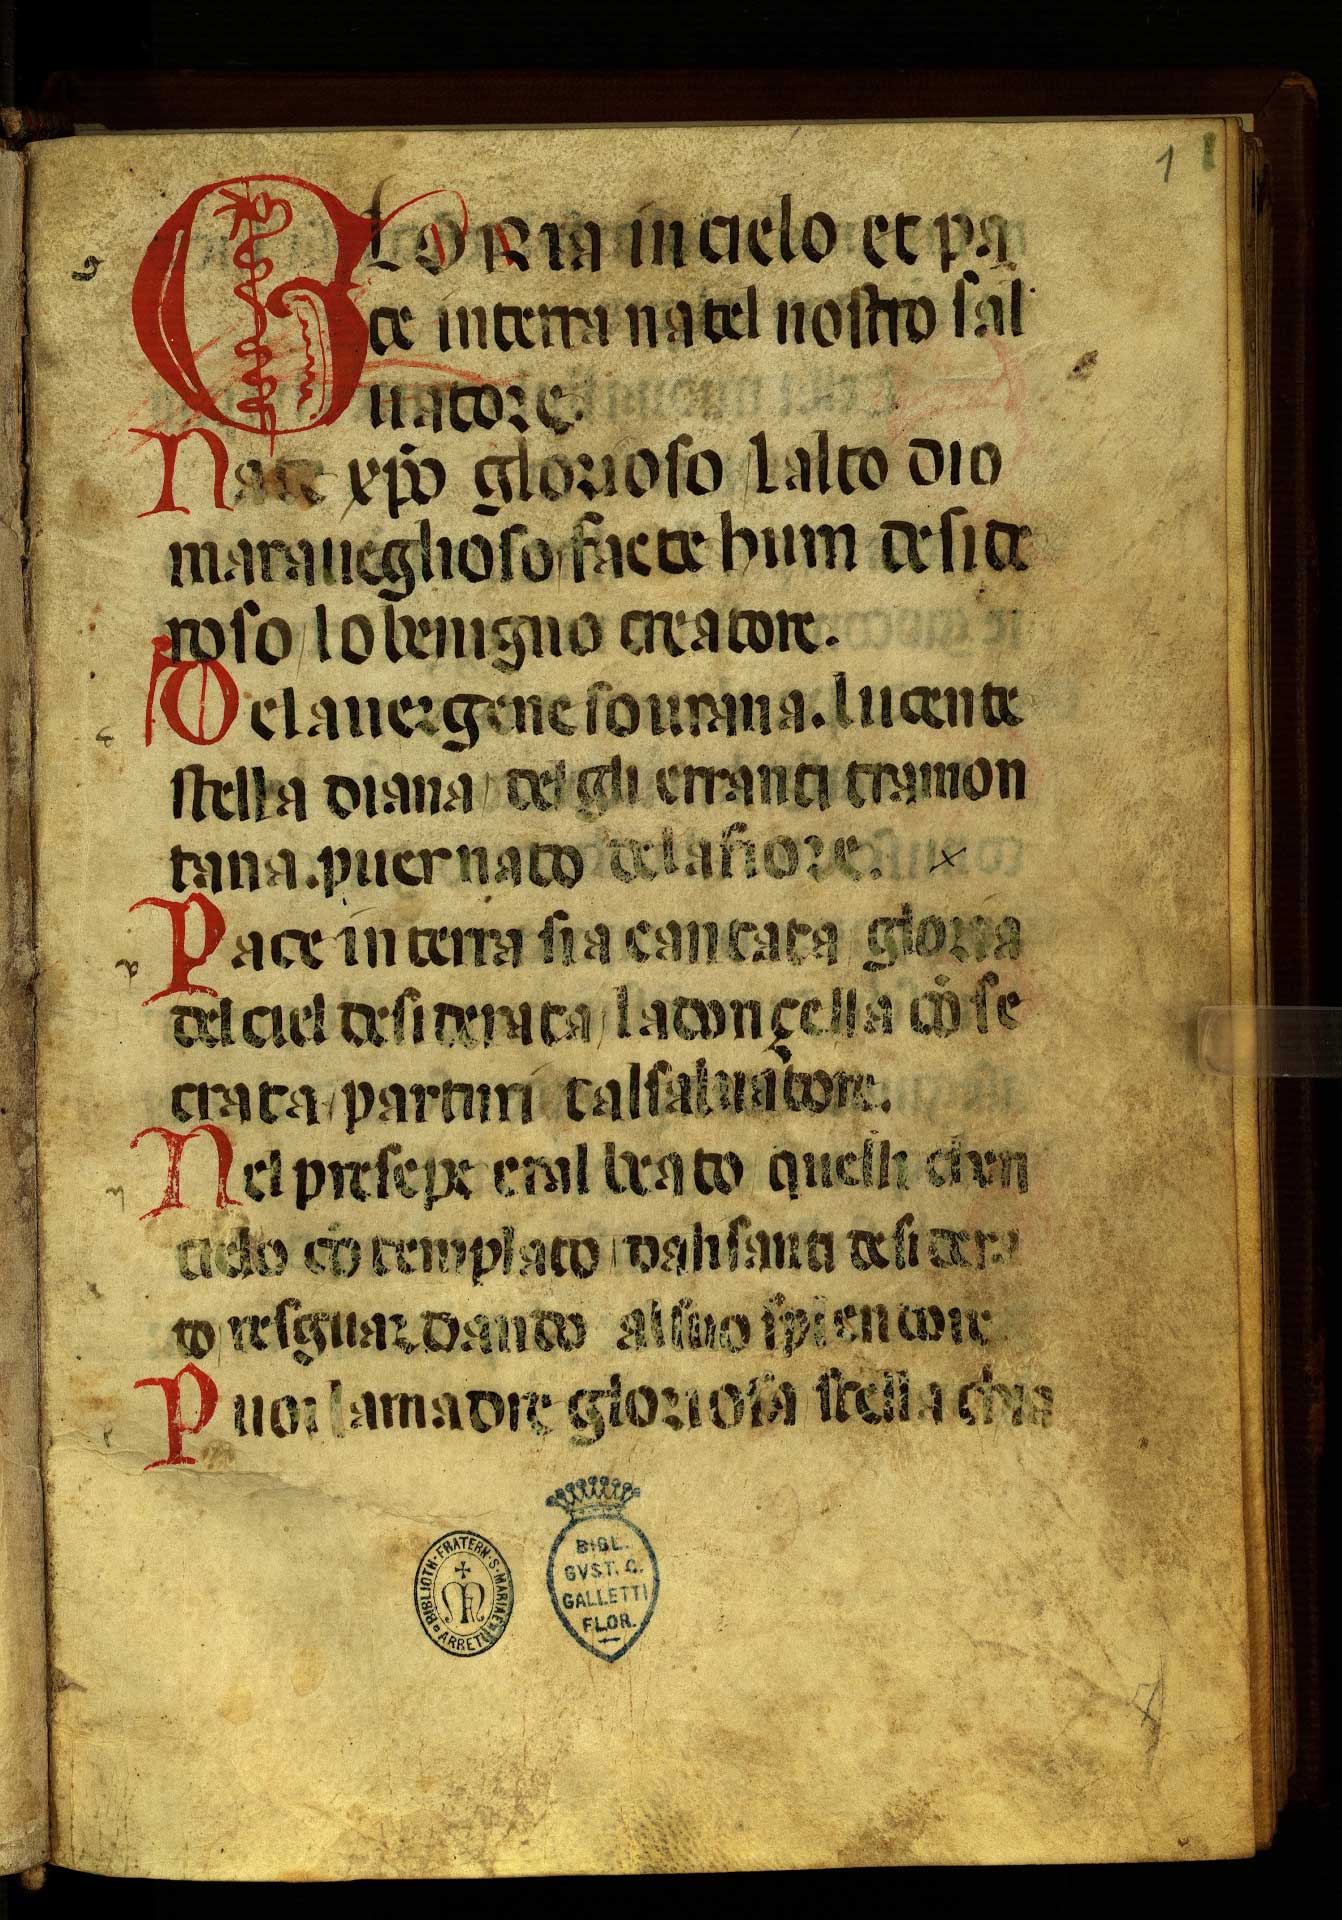 1
GLORIA in cielo et pa
ce interra nacel nostro sal
uatore.
Nacc xpo glorioso / lalto dio
maraueglioso / facte hum deside
roso / lo benigno creatore.
Delauergene sourana. lucente
stella diana / delgli erranti tramon
tana. puer nato delafiore.
Pace interra sia cantata gloria
delciel desiderata / ladonçella cõse
crata / parturi talsaluatore.
Nel presepe eral beato quelli chen
cielo cõtemplato / dalisanti desidera
to / resguardando alsuo splendore
Puoi lamadre gloriosa stella chia
BIBLIOTH·FRATERN·S·MARIAE
ARRETII
M
BIBL.
GVST. C.
GALLETTI
FLOR.